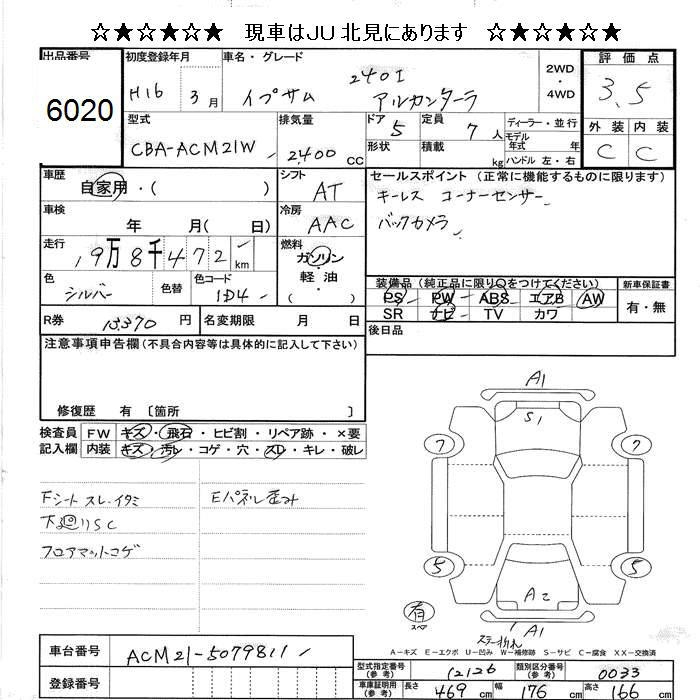 ☆★☆★☆★ 現車はJU北見にあります ☆★☆★☆★
出品番号
6020
初度登録年月
H16 3月
車名・グレード
イプサム 240I アルカンターラ
2WD
・
4WD
評価点
3.5
外装 内装
C C
型式
CBA-ACM21W
排気量
2,400 CC
ドア 5
形状
定員 7人
積載 kg
ディーラー・並行
モデル
年式 年
ハンドル 左・右
車歴
自家用・( )
シフト
AT
車検
年 月( 日)
冷房
AAC
走行
19万8千472 km
燃料
ガソリン
・
軽油
・
( )
色
シルバー
色替
色コード
1D4
R券 10,370円
名変期限 月 日
セールスポイント(正常に機能するものに限ります)
キーレス コーナーセンサー
バックカメラ
装備品(純正品に限り○をつけてください)
PS PW ABS エアB AW
SR ナビ TV カワ
新車保証書
有・無
後日品
注意事項申告欄(不具合内容等は具体的に記入して下さい)
修復歴 有 〔箇所 〕
検査員
記入欄
FW キズ・飛石・ヒビ割・リペア跡・×要
内装 キズ・汚レ・コゲ・穴・スレ・キレ・破レ
Fシート スレ・イタミ
下廻りSC
フロアマットコゲ
Eパネル歪み
A1
S1
7 7
5 5
A2
A1
有
スペア
ステー折れ
A-キズ E-エクボ U-凹み W-補修跡 S-サビ C-腐食 XX-交換済
車台番号
ACM21-5079811
登録番号
型式指定番号
(参考)
12126
類別区分番号
(参考)
0033
車庫証明用
(参考)
長さ 469 cm
幅 176 cm
高さ 166 cm